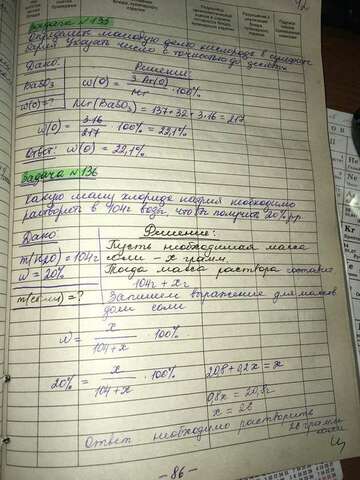 Задача №135
Определить массовую долю кислорода в сульфите
бария. Указать число с точностью до десятых.
Дано: Решение:
BaSO3 w(O) = 3·Ar(O) / Mr · 100%
w(O)=? Mr(BaSO3) = 137+32+3·16 = 217
w(O) = 3·16 / 217 · 100% = 22,1%
Ответ: w(O) = 22,1%
Задача №136
Какую массу хлорида натрия необходимо
растворить в 104г воды, чтобы получить 20% рр.
Дано Решение:
m(H2O) = 104г Пусть необходимая масса
w = 20% соли – x грамм.
Тогда масса раствора составит
104г + xг
m(соли) = ? Запишем выражение для массов
доли соли
w = x / 104+x · 100%
20% = x / 104+x · 100% 20,8+0,2x = x
0,8x = 20,8г
x = 26
Ответ необходимо растворить 26 грамм
соли
- 86 -